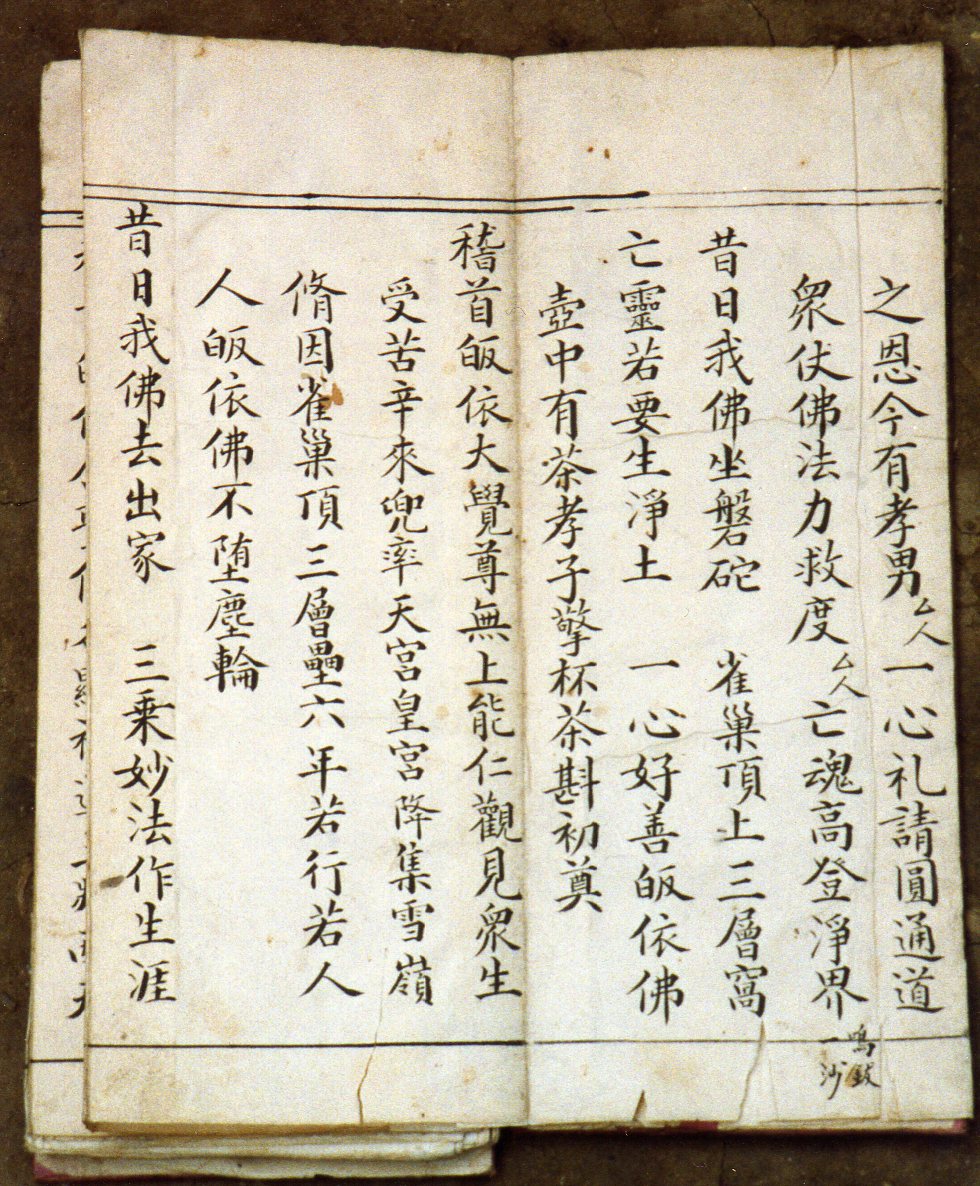 之恩今有孝男厶人一心礼請圓通道
衆仗佛法力救度厶人亡魂高登淨界
鳴鈸
一沙
昔日我佛坐磐砣 雀巢頂上三層窩
亡靈若要生淨土 一心好善皈依佛
壺中有茶孝子擎杯茶斟初奠
稽首皈依大覺尊無上能仁觀見衆生
受苦辛來兜率天宮皇宮降集雪嶺
脩因雀巢頂三層壘六年若行若人
人皈依佛不堕塵輪
昔日我佛去出家 三乘妙法作生涯